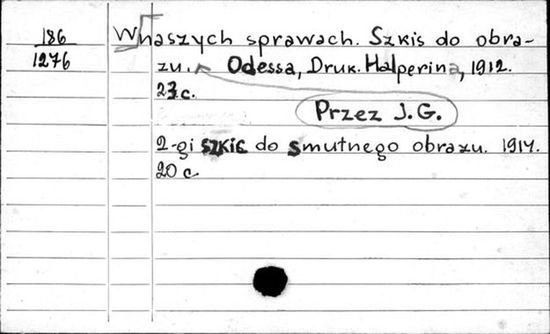 186
1276
W naszych sprawach. Szkis do obra-
zu. Odessa, Druk. Halperina, 1912.
23 c.
Przez J.G.
2-gi szkic do smutnego obrazu. 1914.
20 c.